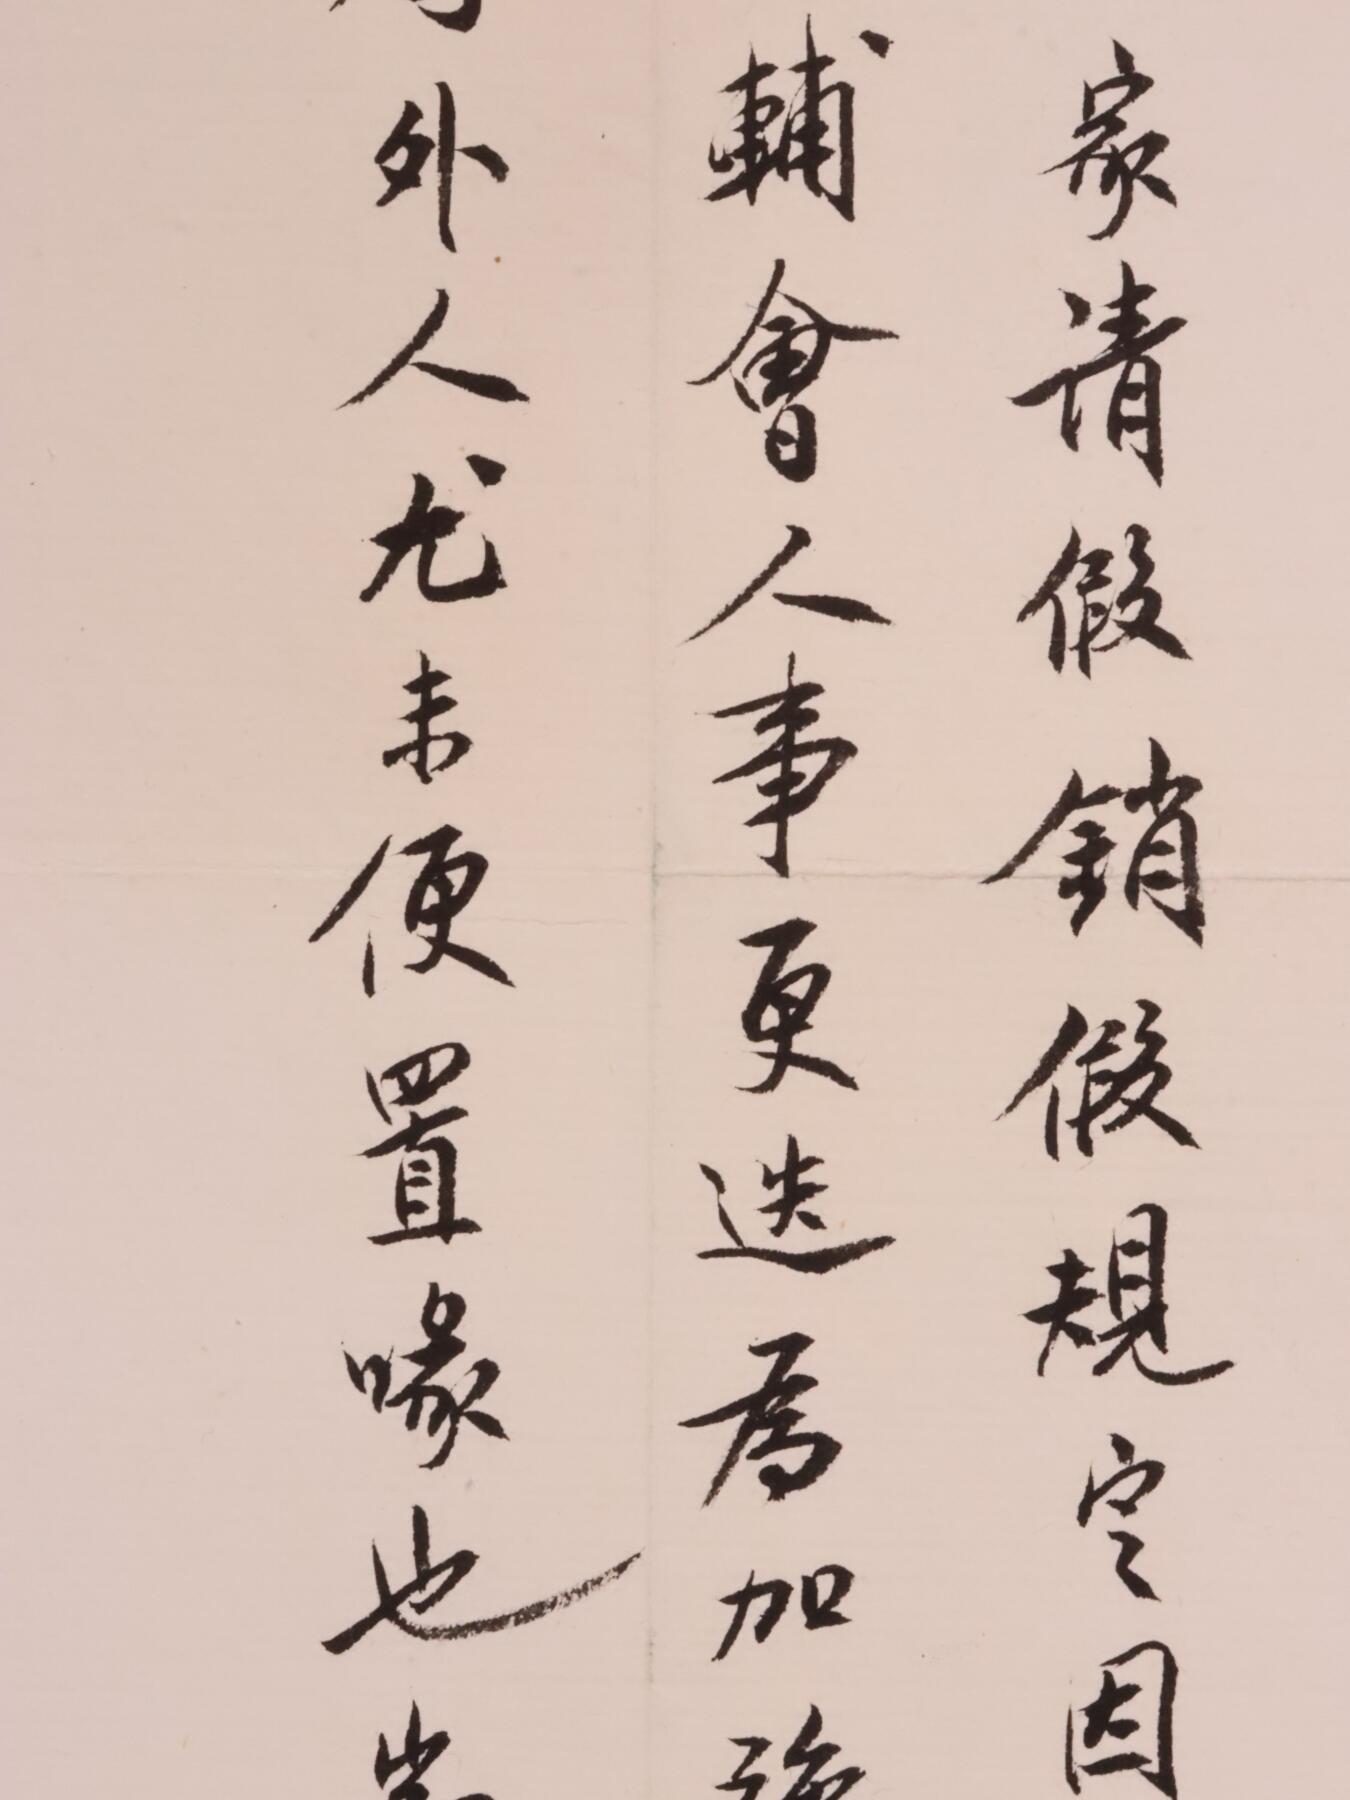 家請假銷假規定因
輔會人事更迭為加強
外人尤未便置喙也